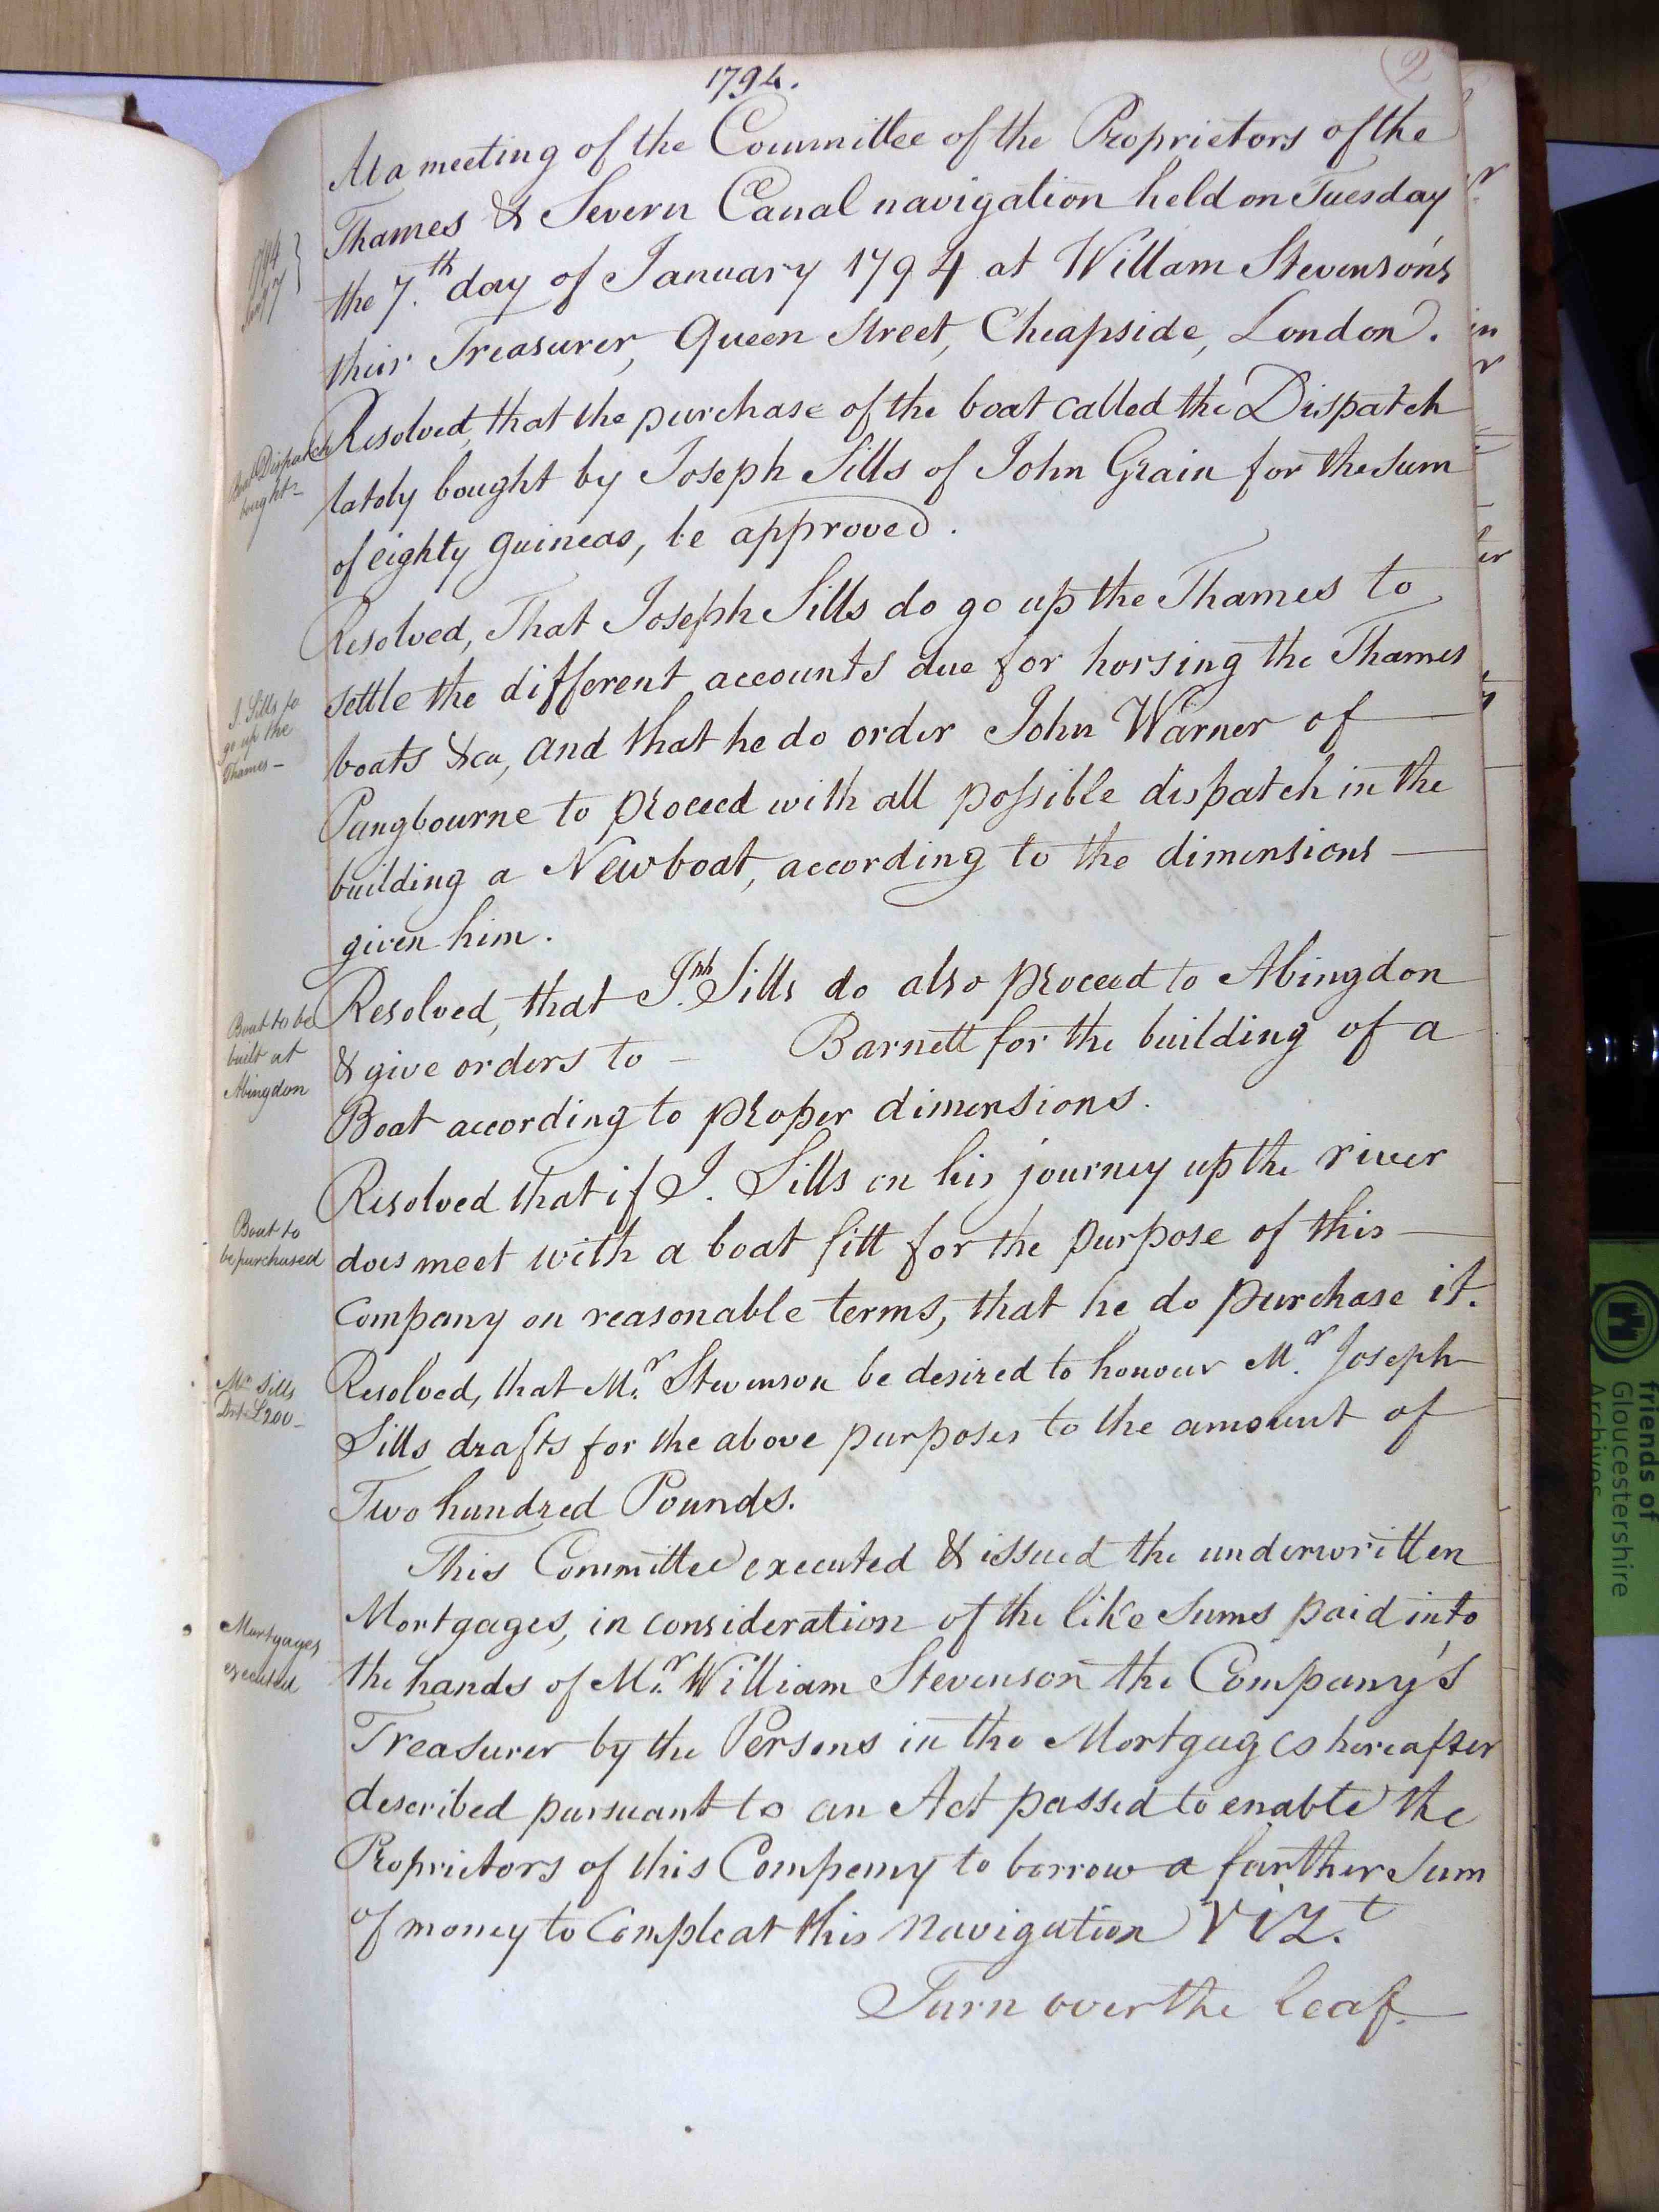 1794.
2
At a meeting of the Committee of the Proprietors of the
Thames & Severn Canal navigation held on Tuesday
1794
Jany 7
the 7.th day of January 1794 at Willam Stevenson's
their Treasurer, Queen Street, Cheapside, London.
Boat Dispatch
bought-
Resolved, that the purchase of the boat called the Dispatch
lately bought by Joseph Sills of John Grain for the Sum
of eighty guineas, be approved.
Resolved, That Joseph Sills do go up the Thames to
J. Sills to
go up the
Thames -
settle the different accounts due for horsing the Thames
boats &ca, and that he do order John Warner of
Pangbourne to proceed with all possible dispatch in the
building a New boat, according to the dimensions
given him.
Boat to be
built at
Abingdon
Resolved, that J.ph Sills do also proceed to Abingdon
& give orders to - Barnett for the building of a
Boat according to proper dimensions.
Resolved that if J. Sills on his journey up the river
Boat to
be purchased
does meet with a boat fitt for the purpose of this
Company on reasonable terms, that he do purchase it.
Mr. Sills
Drt £200-
Resolved, that M.r Stevenson be desired to honour M.r Joseph
Sills drafts for the above purposes to the amount of
Two hundred Pounds.
This Committee executed & issued the underwritten
Mortgages
executed
Mortgages, in consideration of the like Sums paid into
the hands of M.r William Stevenson the Company's
Treasurer by the Persons in the Mortgages hereafter
described pursuant to an Act passed to enable the
Proprietors of this Company to borrow a farther Sum
of money to Compleat this Navigation Viz.t
Turn over the leaf.
friends of
Gloucestershire
Archives